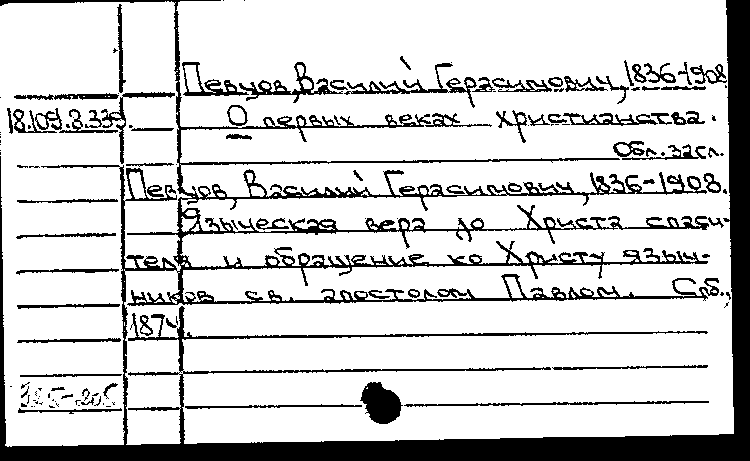 Певцов, Василий Герасимович, 1836-1908
18.109.3.339. О первых веках христианства.
Обл. загл.
Певцов, Василий Герасимович, 1836-1908.
Языческая вера до Христа спаси-
теля и обращение ко Христу языч-
ников св. апостолом Павлом. Спб.,
1874.